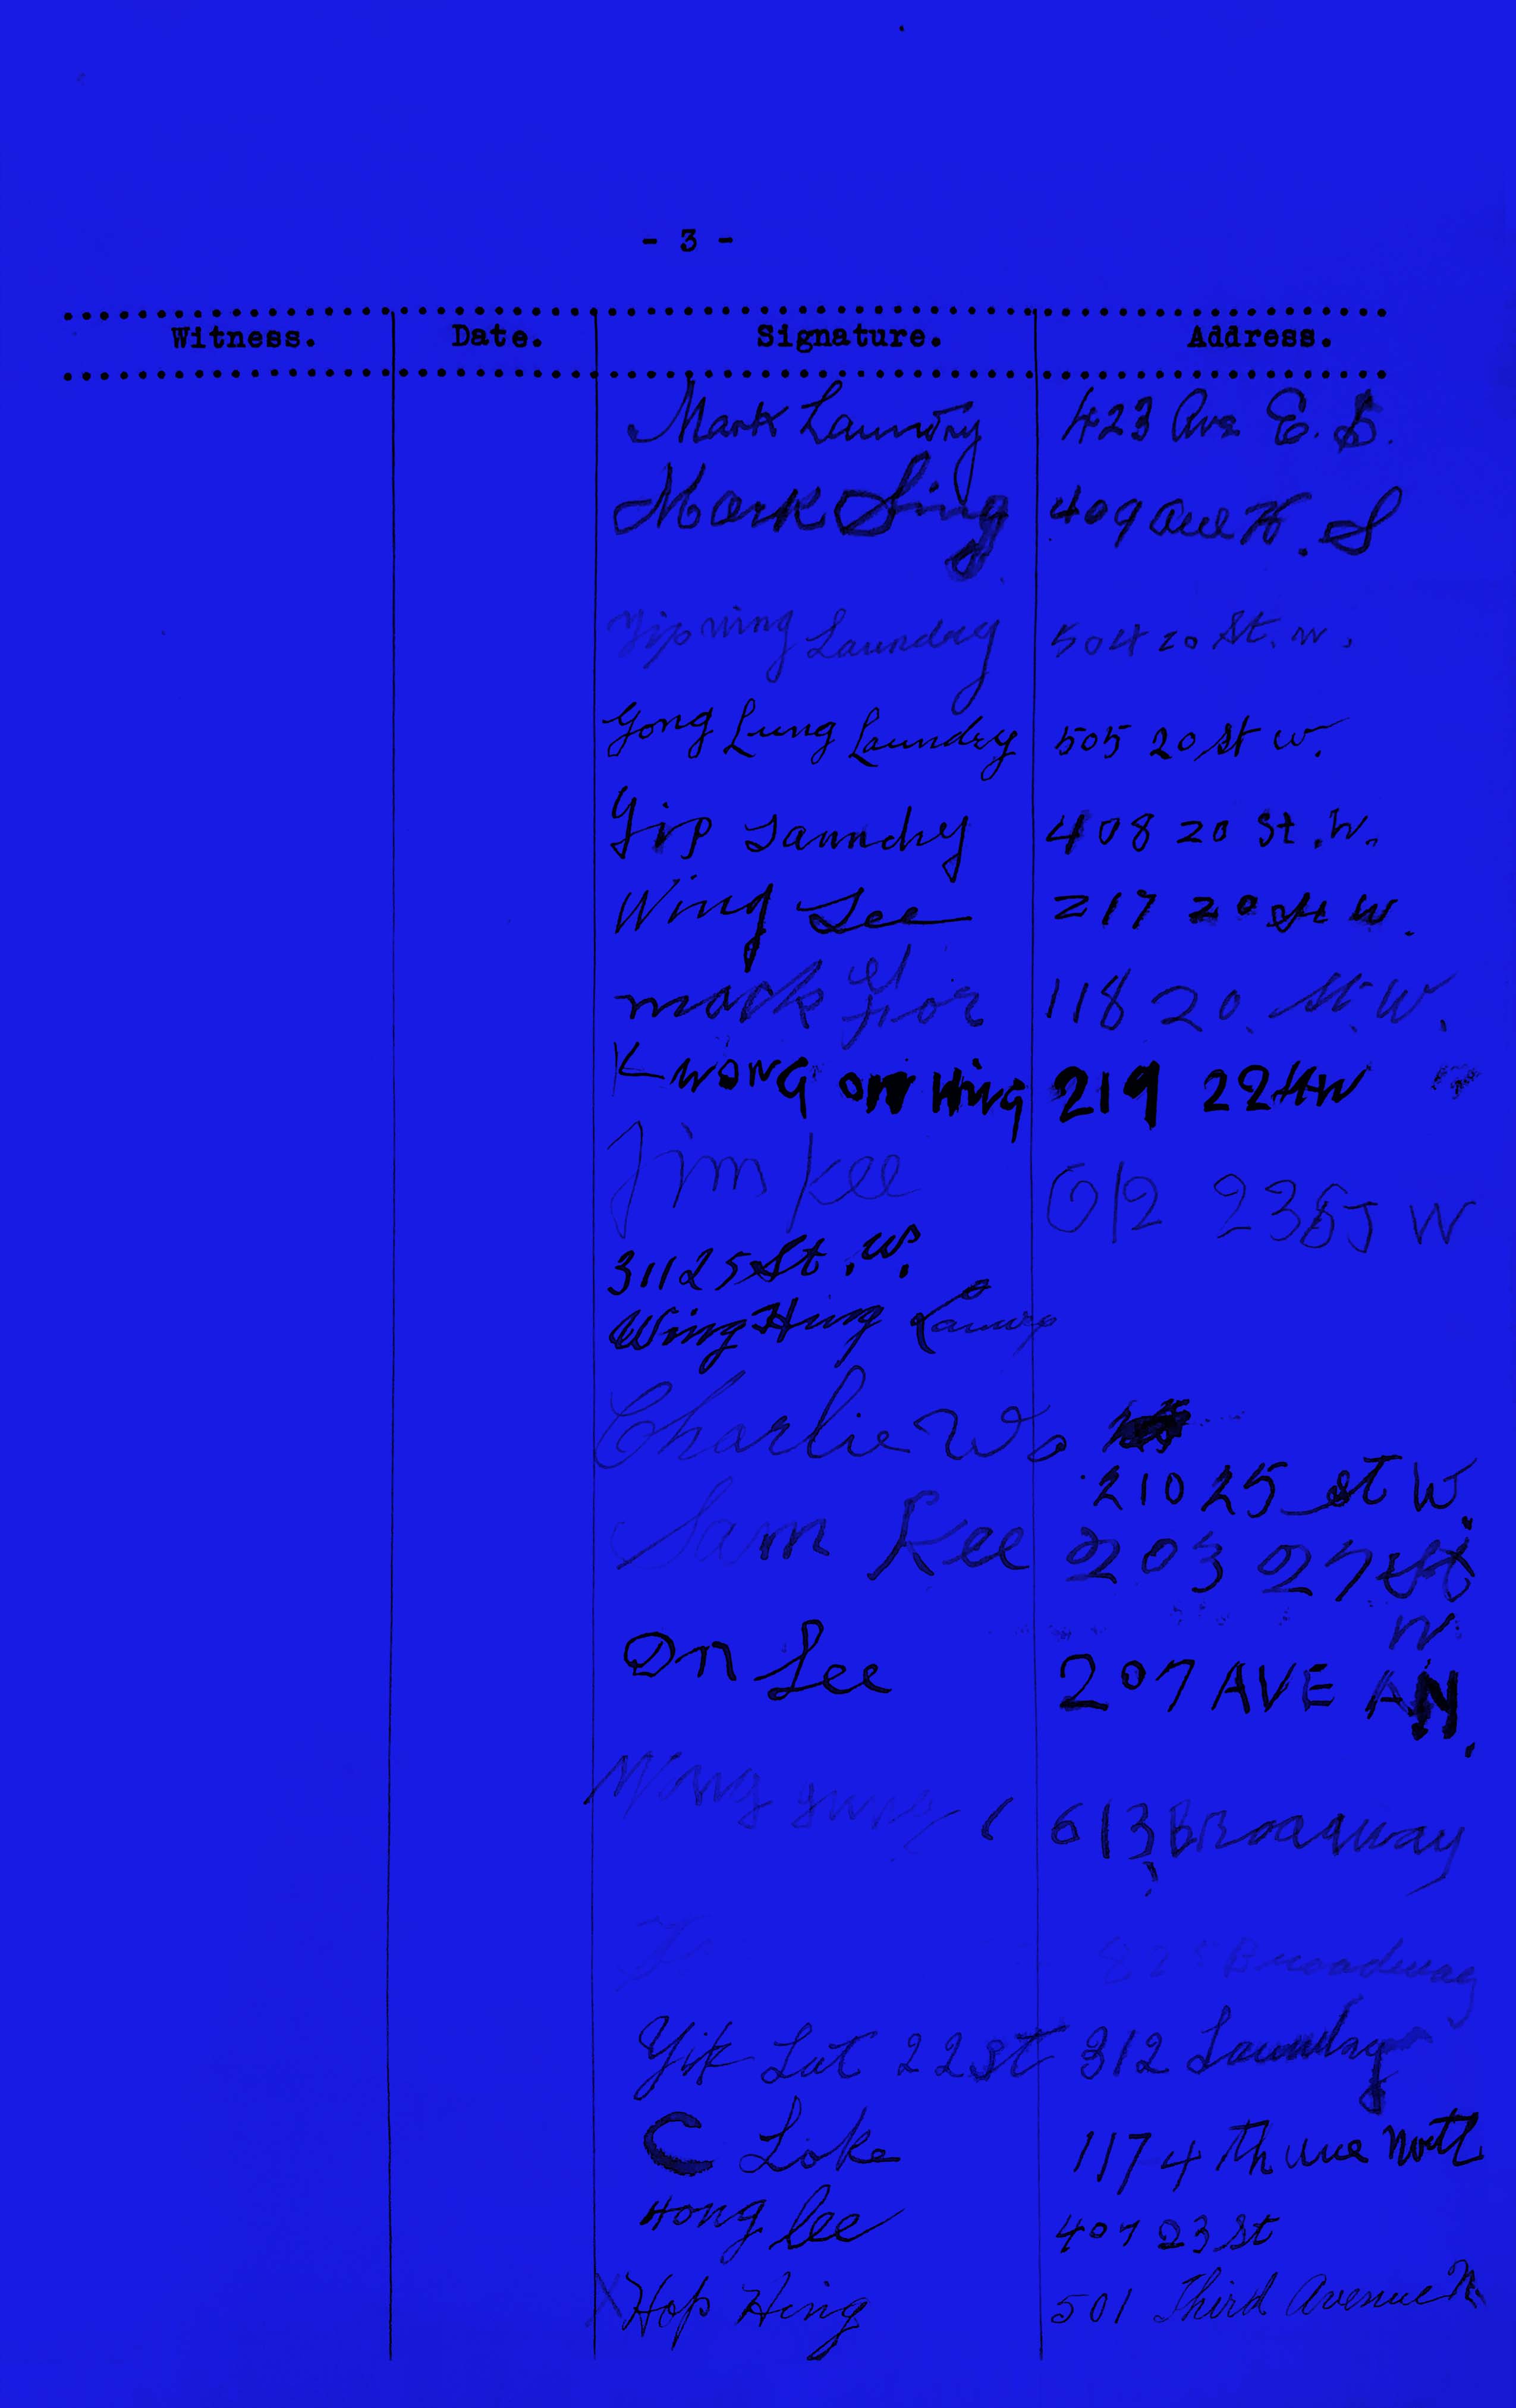 - 3 -
Witness. Date. Signature. Address.
Mark Laundry 423 Ave E. S.
Mark Sing 409 Ave H. S
Yip ning Laundry 504 20 St. W.
Gong Lung Laundry 505 20 St W.
Yip Laundry 408 20 St. W.
Wing Lee 217 20 St W.
mark 118 20. St. W.
KWONG ON HING 219 22 St W
Jim Kee 612 23 St W
311 25 St. W.
Wing Hing
Charlie Wo
210 25 St W.
Sam Kee 203 27 St
W.
On Lee 207 AVE A N.
613 Broadway
Broadway
Yik Lat 22 St 312 Laundry
C Loke 117 4 th Ave North
Hong Lee 407 23 St
X Hop Hing 501 Third Avenue N.